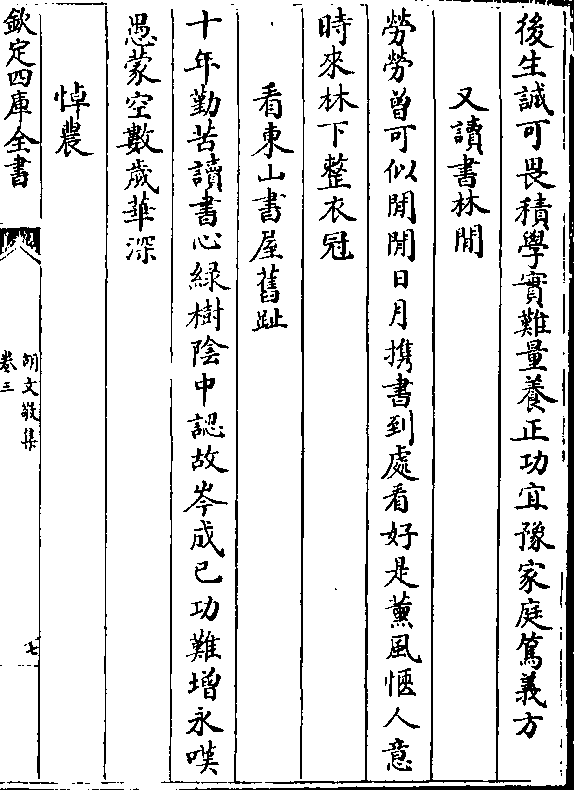 後生誠可畏積學實難量養正功宜豫家庭篤義方
又讀書林間
勞勞曾可似閒閒日月携書到處看好是薰風愜人意
時來林下整衣冠
看東山書屋舊趾
十年勤苦讀書心綠樹陰中認故岑成已功難增永嘆
愚蒙空數歲華深
悼農
欽定四庫全書
胡文敬集
卷三
七